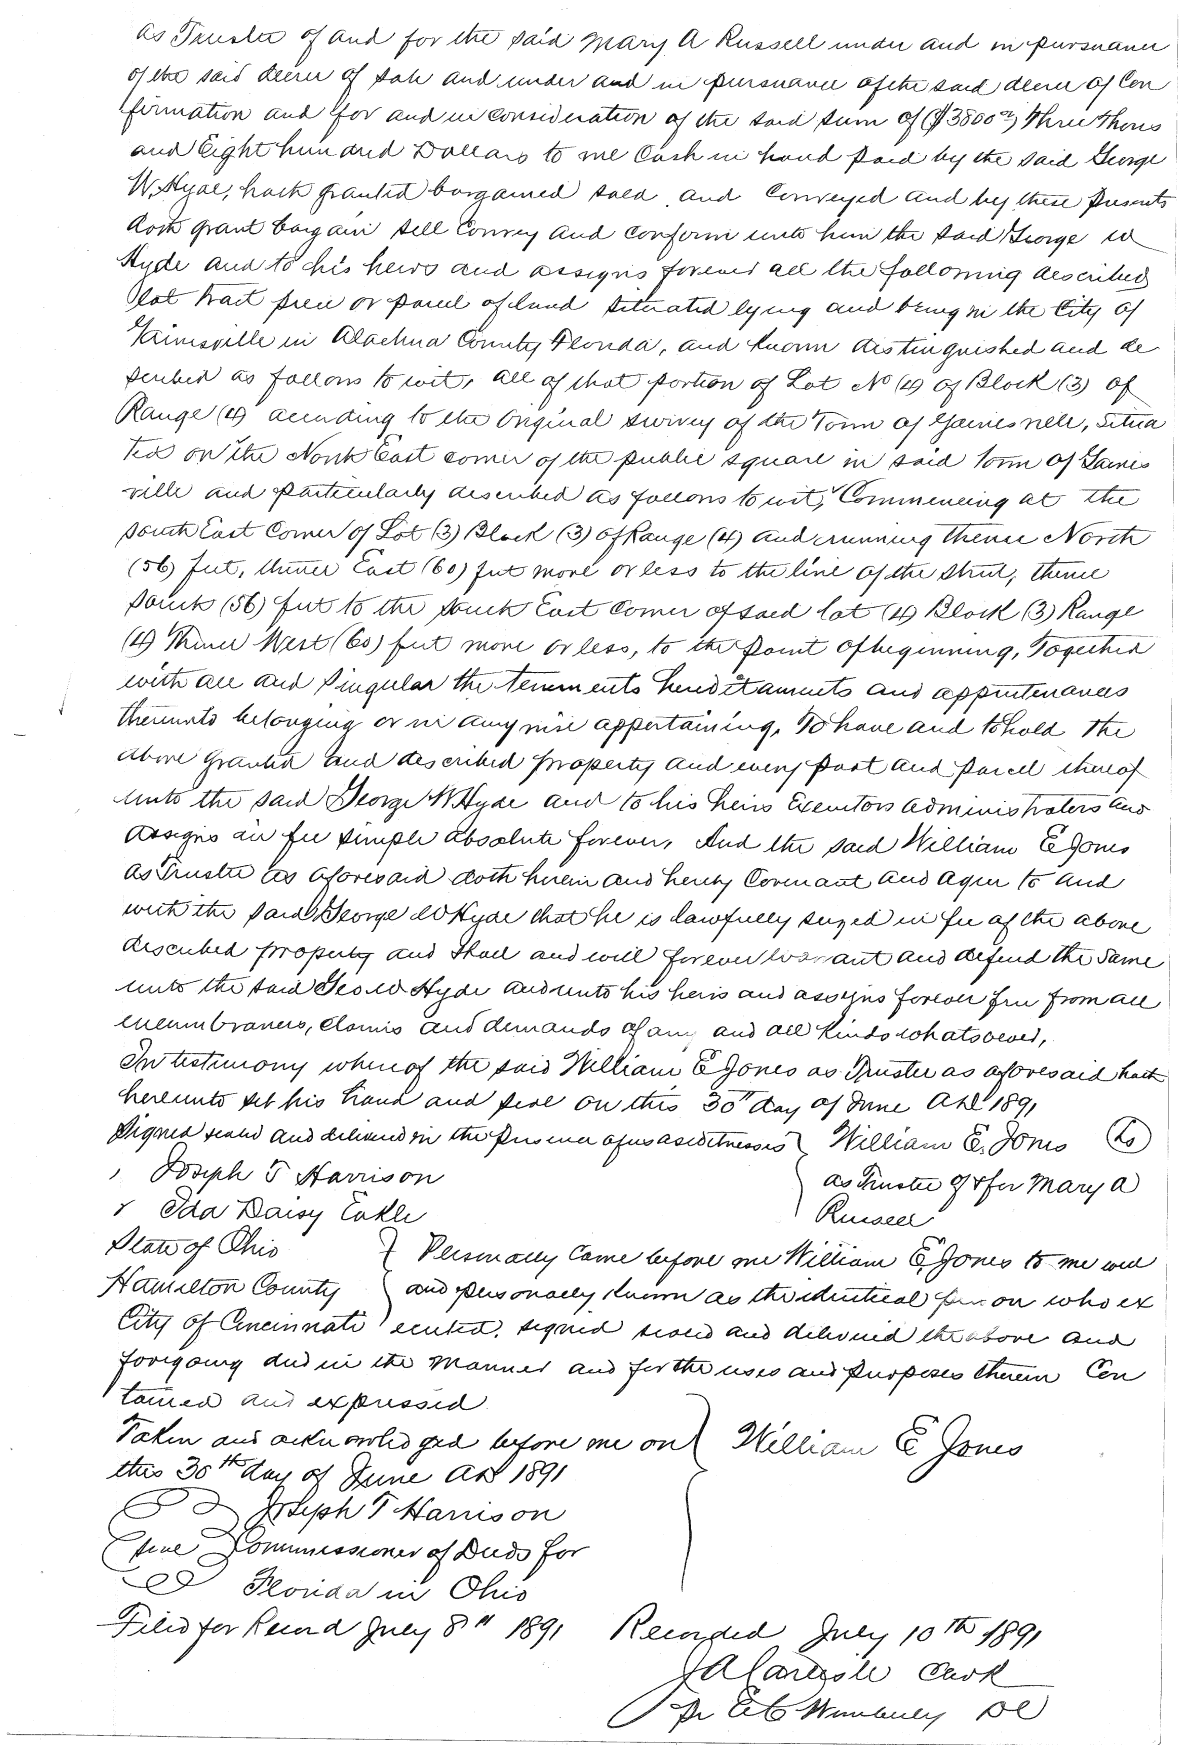 as Trustee of and for the said Mary A Russell under and in pursuance
of the said decree of sale and under and in pursuance of the said decree of Con
firmation and for and in consideration of the said sum of ($3800.00) Three Thous
and Eight hundred Dollars to me Cash in hand paid by the said George
W. Hyde, hath granted bargained sold and Conveyed and by these presents
doth grant bargain sell Convey and Confirm unto him the said George W
Hyde and to his heirs and assigns forever all the following described
lot tract piece or parcel of land situated lying and being in the City of
Gainesville in Alachua County Florida, and known distinguished and de
scribed as follows to wit, all of that portion of Lot No (4) of Block (3) of
Range (4) according to the Original survey of the Town of Gainesville, Situa
ted on the North East corner of the public square in said town of Gaines
ville and particularly described as follows to wit, Commencing at the
South East Corner of Lot (3) Block (3) of Range (4) and running thence North
(56) feet, thence East (60) feet more or less to the line of the street, thence
South (56) feet to the South East Corner of said lot (4) Block (3) Range
(4) Thence West (60) feet more or less, to the point of beginning, Together
with all and singular the tenements hereditaments and appurtenances
thereunto belonging or in any wise appertaining, To have and to hold the
above granted and described property and every part and parcel thereof
unto the said George W Hyde and to his heirs Executors administrators and
assigns in fee simple absolute forever, And the said William E Jones
as Trustee as aforesaid doth herein and hereby Covenant and agree to and
with the said George W Hyde that he is lawfully seized in fee of the above
described property and shall and will forever warrant and defend the same
unto the said Geo W Hyde and unto his heirs and assigns forever free from all
encumbrances, claims and demands of any and all kinds whatsoever,
In testimony whereof the said William E Jones as Trustee as aforesaid hath
hereunto set his hand and seal on this 30th day of June AD 1891
Signed sealed and delivered in the presence of us as witnesses William E. Jones (LS)
Joseph T Harrison as Trustee of & for Mary A
Ida Daisy Eakle Russell
State of Ohio Personally Came before me William E. Jones to me well
Hamilton County and personally known as the identical person who ex
City of Cincinnati ecuted, signed sealed and delivered the above and
foregoing deed in the manner and for the uses and purposes therein Con
tained and expressed
Taken and acknowledged before me on William E Jones
this 30th day of June AD 1891
Joseph T Harrison
Seal Commissioner of Deeds for
Florida in Ohio
Filed for Record July 8th 1891 Recorded July 10th 1891
J A Carlisle Clerk
pr E C Wimberly DC